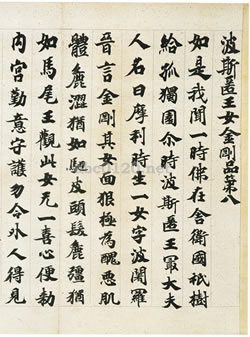 波斯匿王女金剛品第八
如是我聞一時佛在舍衛國祇樹
給孤獨園尒時波斯匿王冣大夫
人名曰摩利時生一女字波闍羅
晉言金剛其女面狠極為醜惡肌
體麁澀猶如駞皮頭髮麁彊猶
如馬尾王觀此女无一喜心便勅
內宮勤意守護勿令外人得見